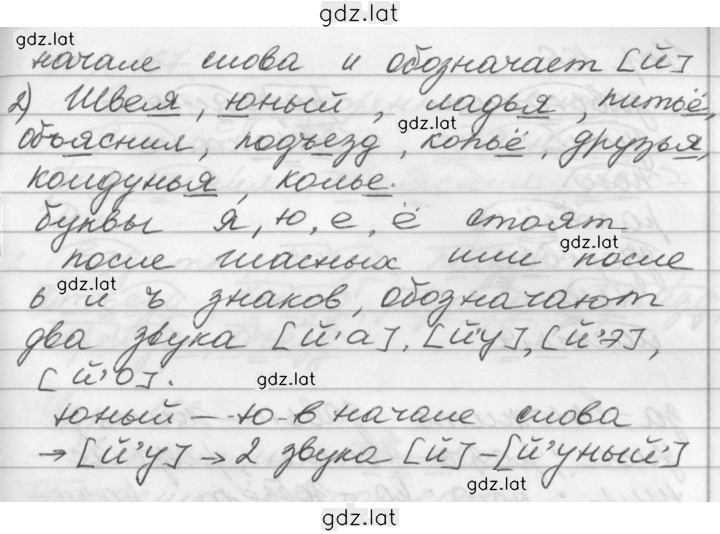 gdz.lat
gdz.lat
начале слова и обозначает [й]
2) Швея, юный, ладья, питьё,
gdz.lat
объяснил, подъезд, копьё, друзья,
колдунья, колье.
буквы я, ю, е, ё стоят
gdz.lat
после гласных или после
gdz.lat
ь и ъ знаков, обозначают
два звука [й'а], [й'у], [й'э],
[й'о].
gdz.lat
юный — ю - в начале слова
→ [й'у] → 2 звука [й] – [й'уный']
gdz.lat
gdz.lat